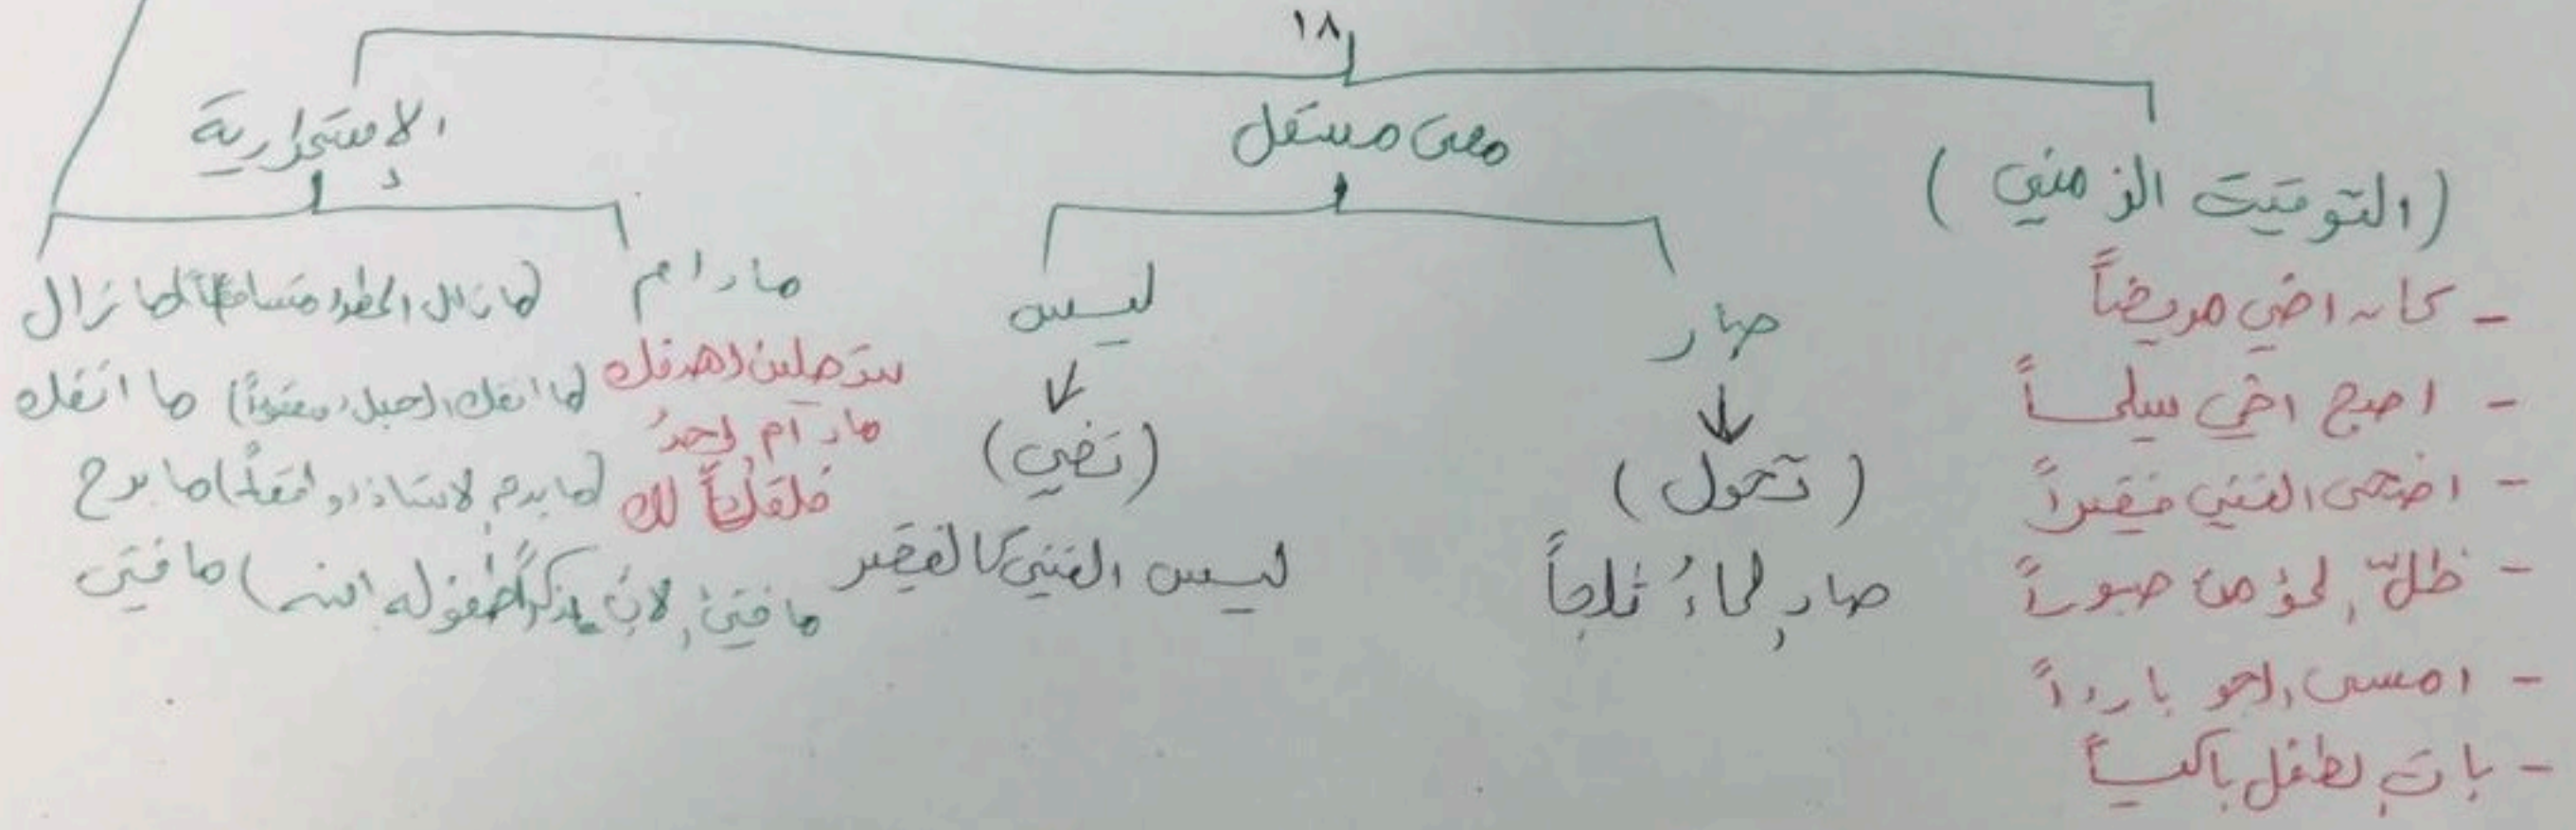 ١٨
(التوقيت الزمني)
- كان اخي مريضاً
- اصبح اخي سليماً
- اضحى الغني فقيراً
- ظلّ المؤمن صبوراً
- امسى الجو بارداً
- بات الطفل باكياً
معنى مستقل
صار
(تحول)
صار الماءُ ثلجاً
ليس
(نفي)
ليس الغني كالفقير
الاستمرارية
مادام
ستصلين لهدفك
مادام احدُ
لك
ما زال (ما زال المطر
ما انفك (ما انفك الحبل معقوداً)
ما برح (ما برح الاستاذ واقفاً)
ما فتئ (ما فتئ الابن يذكر طفولة ابنه)